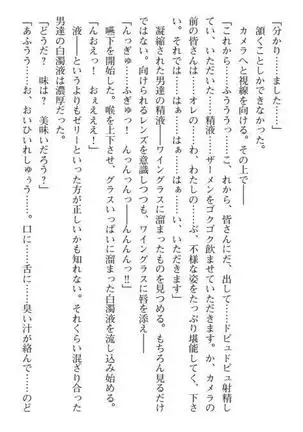 「分かり……ました……」
頷くことしかできなかった。
カメラへと視線を向ける。その上で――
「これから……ふうううっ……こ、これから、皆さんにだ、出して……ドビュドビュ射精し
ていただいた……精液……ザーメンをゴクゴク飲ませていただきます。か、カメラの
前の皆さんは……オレの……わ、わたしの……ぶ、不様な姿をたっぷり堪能して、下さ
い。それでは……はぁ……はぁ……はぁ……い、いただきます」
凝縮された男達の精液――ワイングラスに溜まったものを見つめる。もちろん見るだけ
ではない。向けられるレンズを意識しつつも、ワイングラスに唇を添え――
「んっぎゅ……ふぎゅっ！　んっんんっ――んんんんっ!!」
嚥下を開始した。喉を上下させ、グラスいっぱいに溜まった白濁液を流し込み始める。
「んおえっ！　おぇえええ！」
液――というよりもゼリーといった方が正しいかも知れない。それくらい混ざり合った
男達の白濁液は濃厚だった。
「どうだ？　味は？　美味いだろう？」
「あふうう……お、おいひいれしゅぅう……。口に……舌に……臭い汁が絡んで……のど